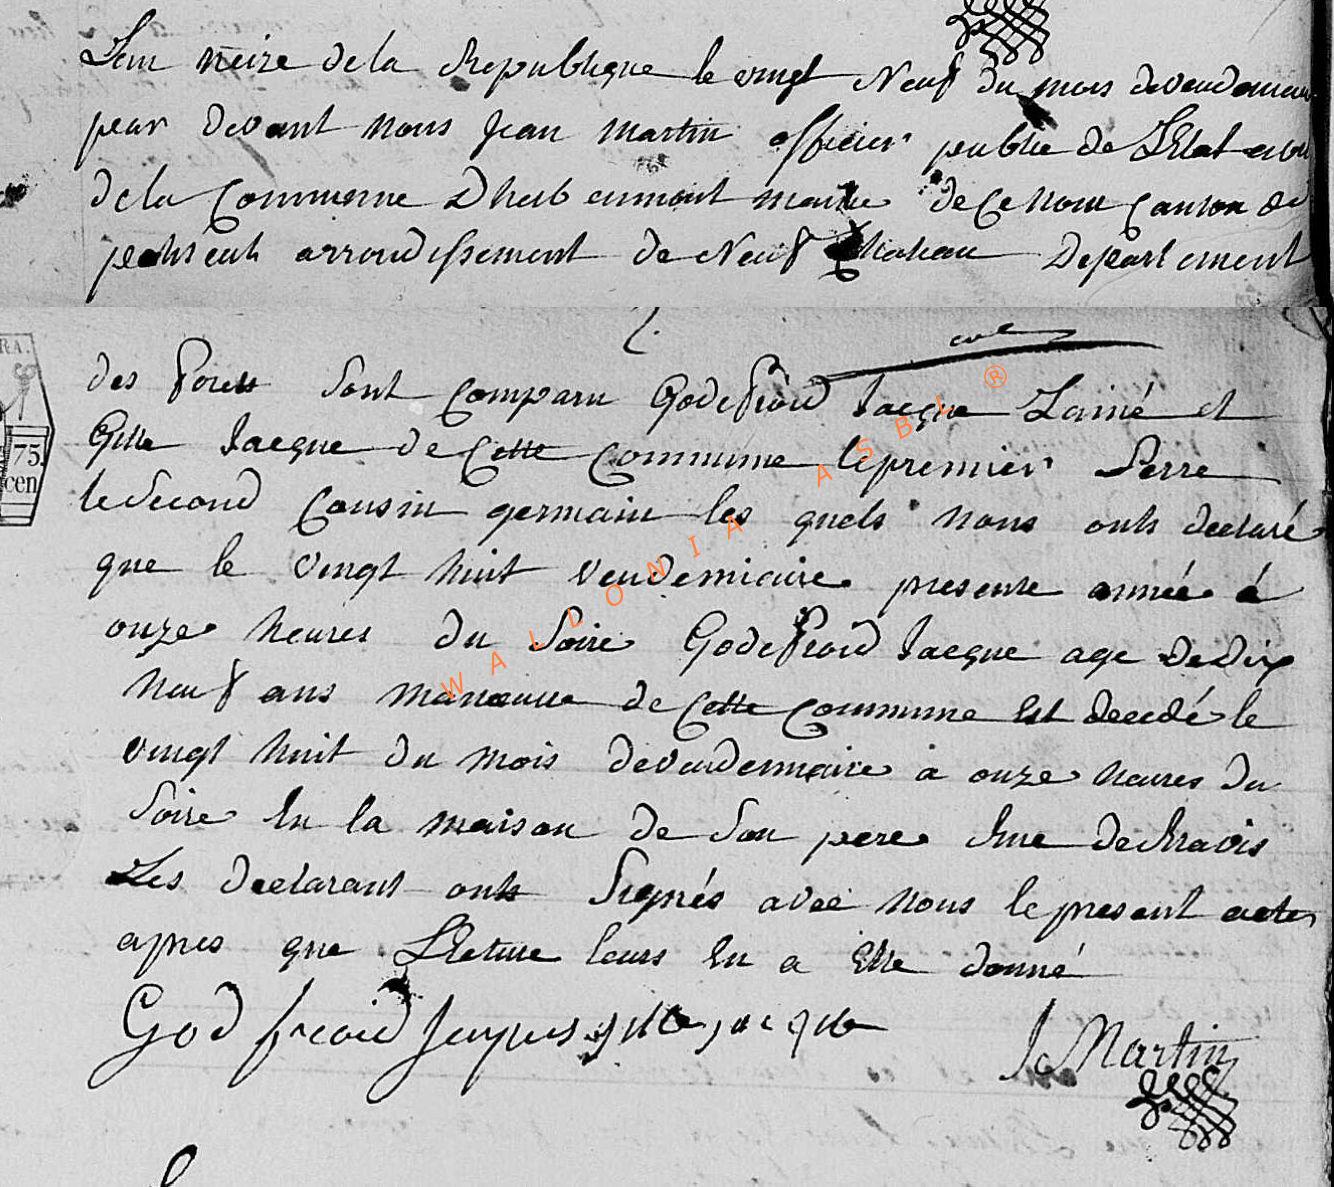 L'an treize de la Republique le vingt Neuf du mois devendemiair
par devant nous Jean Martin officier public de L'Etat civil
de la Commune Dherbeumont mairie de Ce nom Canton de
arrondissement de Neuf Chateau Departement
des forets sont comparu Godefroid Jacque Lainé et
Gille Jacque de Cette Commune le premier Perre
le second Cousin germain les quels nous onts declaré
que le vingt huit vendemiaire presente année à
onze heures du soire Godefroid Jacque age de dix
neuf ans manœuvre de Cette Commune Est decedé le
vingt huit du mois devendemiaire à onze heures du
soire En la maison de son pere Rue
Les declarant onts signés avec nous le present acte
apres que Lecture leurs En a Etté donné
God froid Jacques gille jacque
J Martin
RA.
75.
cen
WALLONIA ASBL ®